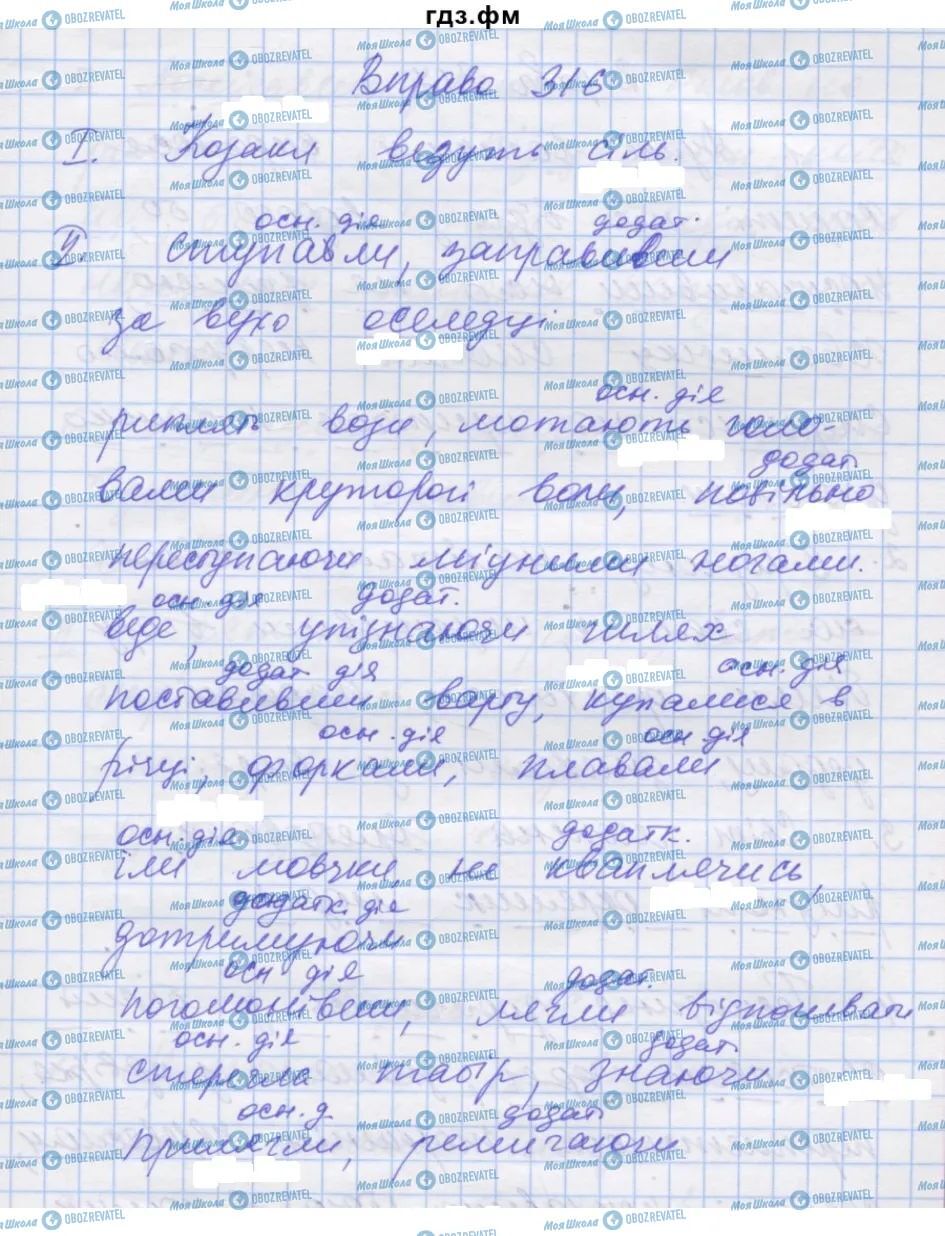 гдз.фм
Вправа 316
I. Козаки ведуть сіль.
осн. дія додат.
II. ступали, заправивши
за вухо оселедці
осн. дія
риплять вози, мотають голо-
додат.
вами круторогі воли, повільно
переступаючи міцними ногами.
осн. дія додат.
веде, упізнаючи шлях
додат дія осн. дія
поставивши варту, купалися в
осн. дія осн дія
річці, форкали, плавали
осн. дія додатк.
їли мовчки, не кваплячись,
додатк. дія
дотримуючи
осн дія додат.
погомонівши, лягли відпочивати
осн. дія додат.
стерегли табір, знаючи
осн. д. додат
прилягли, ремигаючи
Моя Школа OBOZREVATEL